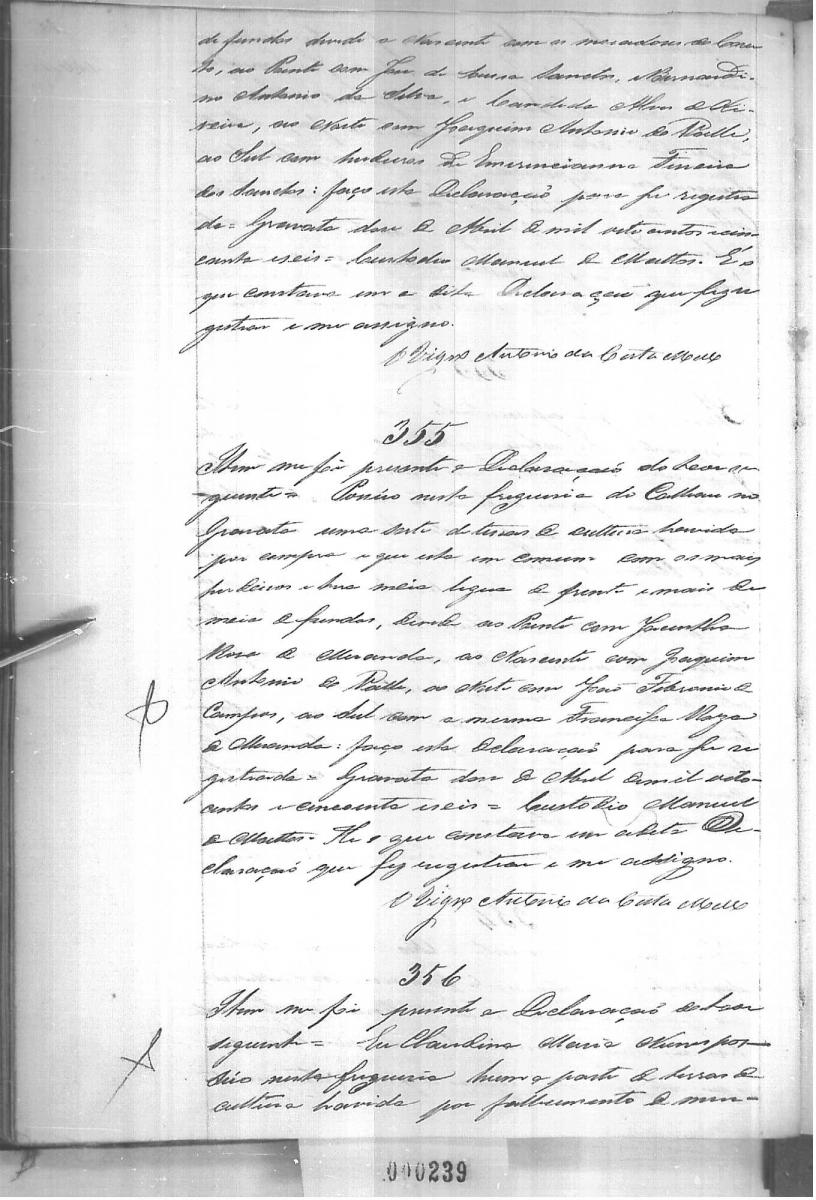 de fundos divide o Nascente com os moradores do Coru-
to, ao Poente com José de Sousa Sanctos, e Bernardi-
no Antonio da Silva, e Candida Alves de Oli-
veira, ao Norte com Joaquim Antonio do Valle,
ao Sul com herdeiros de Emerencianna Ferreira
dos Sanctos: faço esta Declaração para ser registra
da = Gravata dose de Abril de mil oito centos e cin-
coenta e seis = Custodio Manuel de Mattos. É o
que constava em a dita Declaração que fiz re
gistrar e me assigno.
O Vigrº Antonio da Costa Mello
355
Item me foi presente a Declaração do teor se-
guinte = Possúo nesta freguezia do no
Gravata uma sorte de terras de cultura havida
por compra e que esta em comum com os mais
herdeiros e tera meia legua de frente e mais de
meia de fundos, divide ao Poente com Jacintha
Rosa de Miranda, ao Nascente com Joaquim
Antonio do Valle, ao Norte com João de
Campos, ao Sul com a mesma Francisca Roza
de Miranda: faço esta declaração para ser re
gistrada = Gravata dose de Abril de mil oito-
centos e cincoenta e seis = Custodio Manuel
de Mattos. He o que constava em a dita De-
claração que fiz registrar e me assigno.
O Vigrº Antonio da Costa Mello
356
Item me foi presente a Declaração do teor
seguinte = Eu Claudina Maria Nunes pos-
súo nesta freguezia huma parte de terras de
cultura havida por fallecimento de meu-
000239